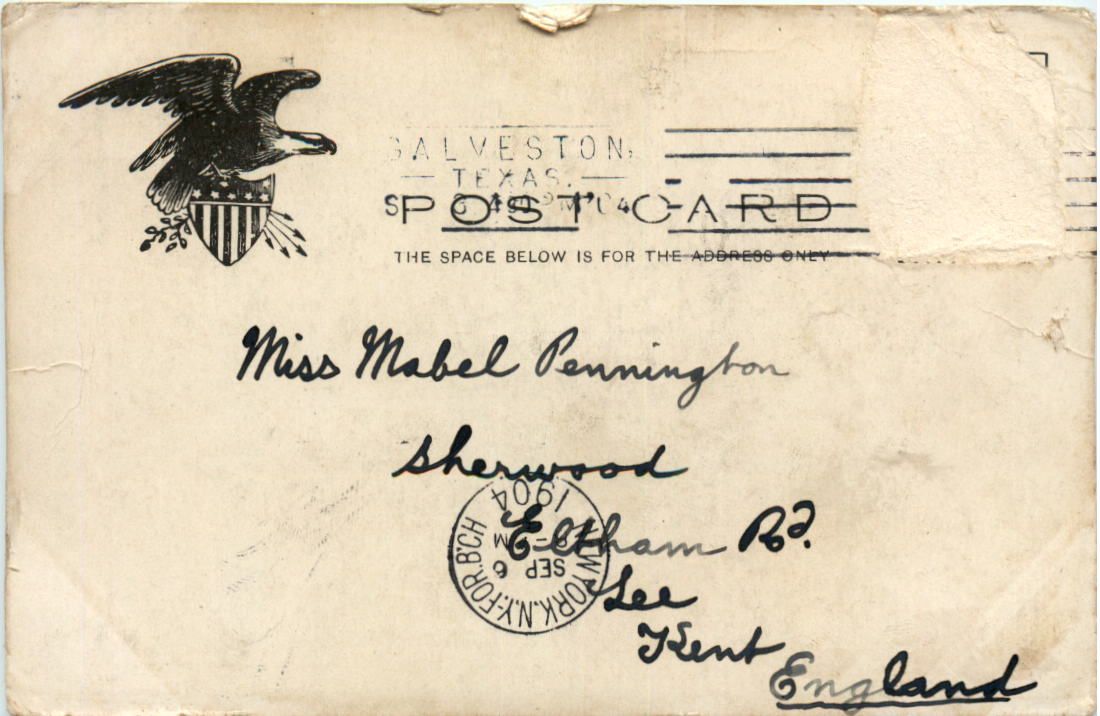 GALVESTON,
TEXAS.
POST CARD
THE SPACE BELOW IS FOR THE ADDRESS ONLY
Miss Mabel Pennington
Sherwood
Eltham Rd.
Lee
Kent
England
NEW YORK, N.Y. FOR. B'CH
SEP 6
1904